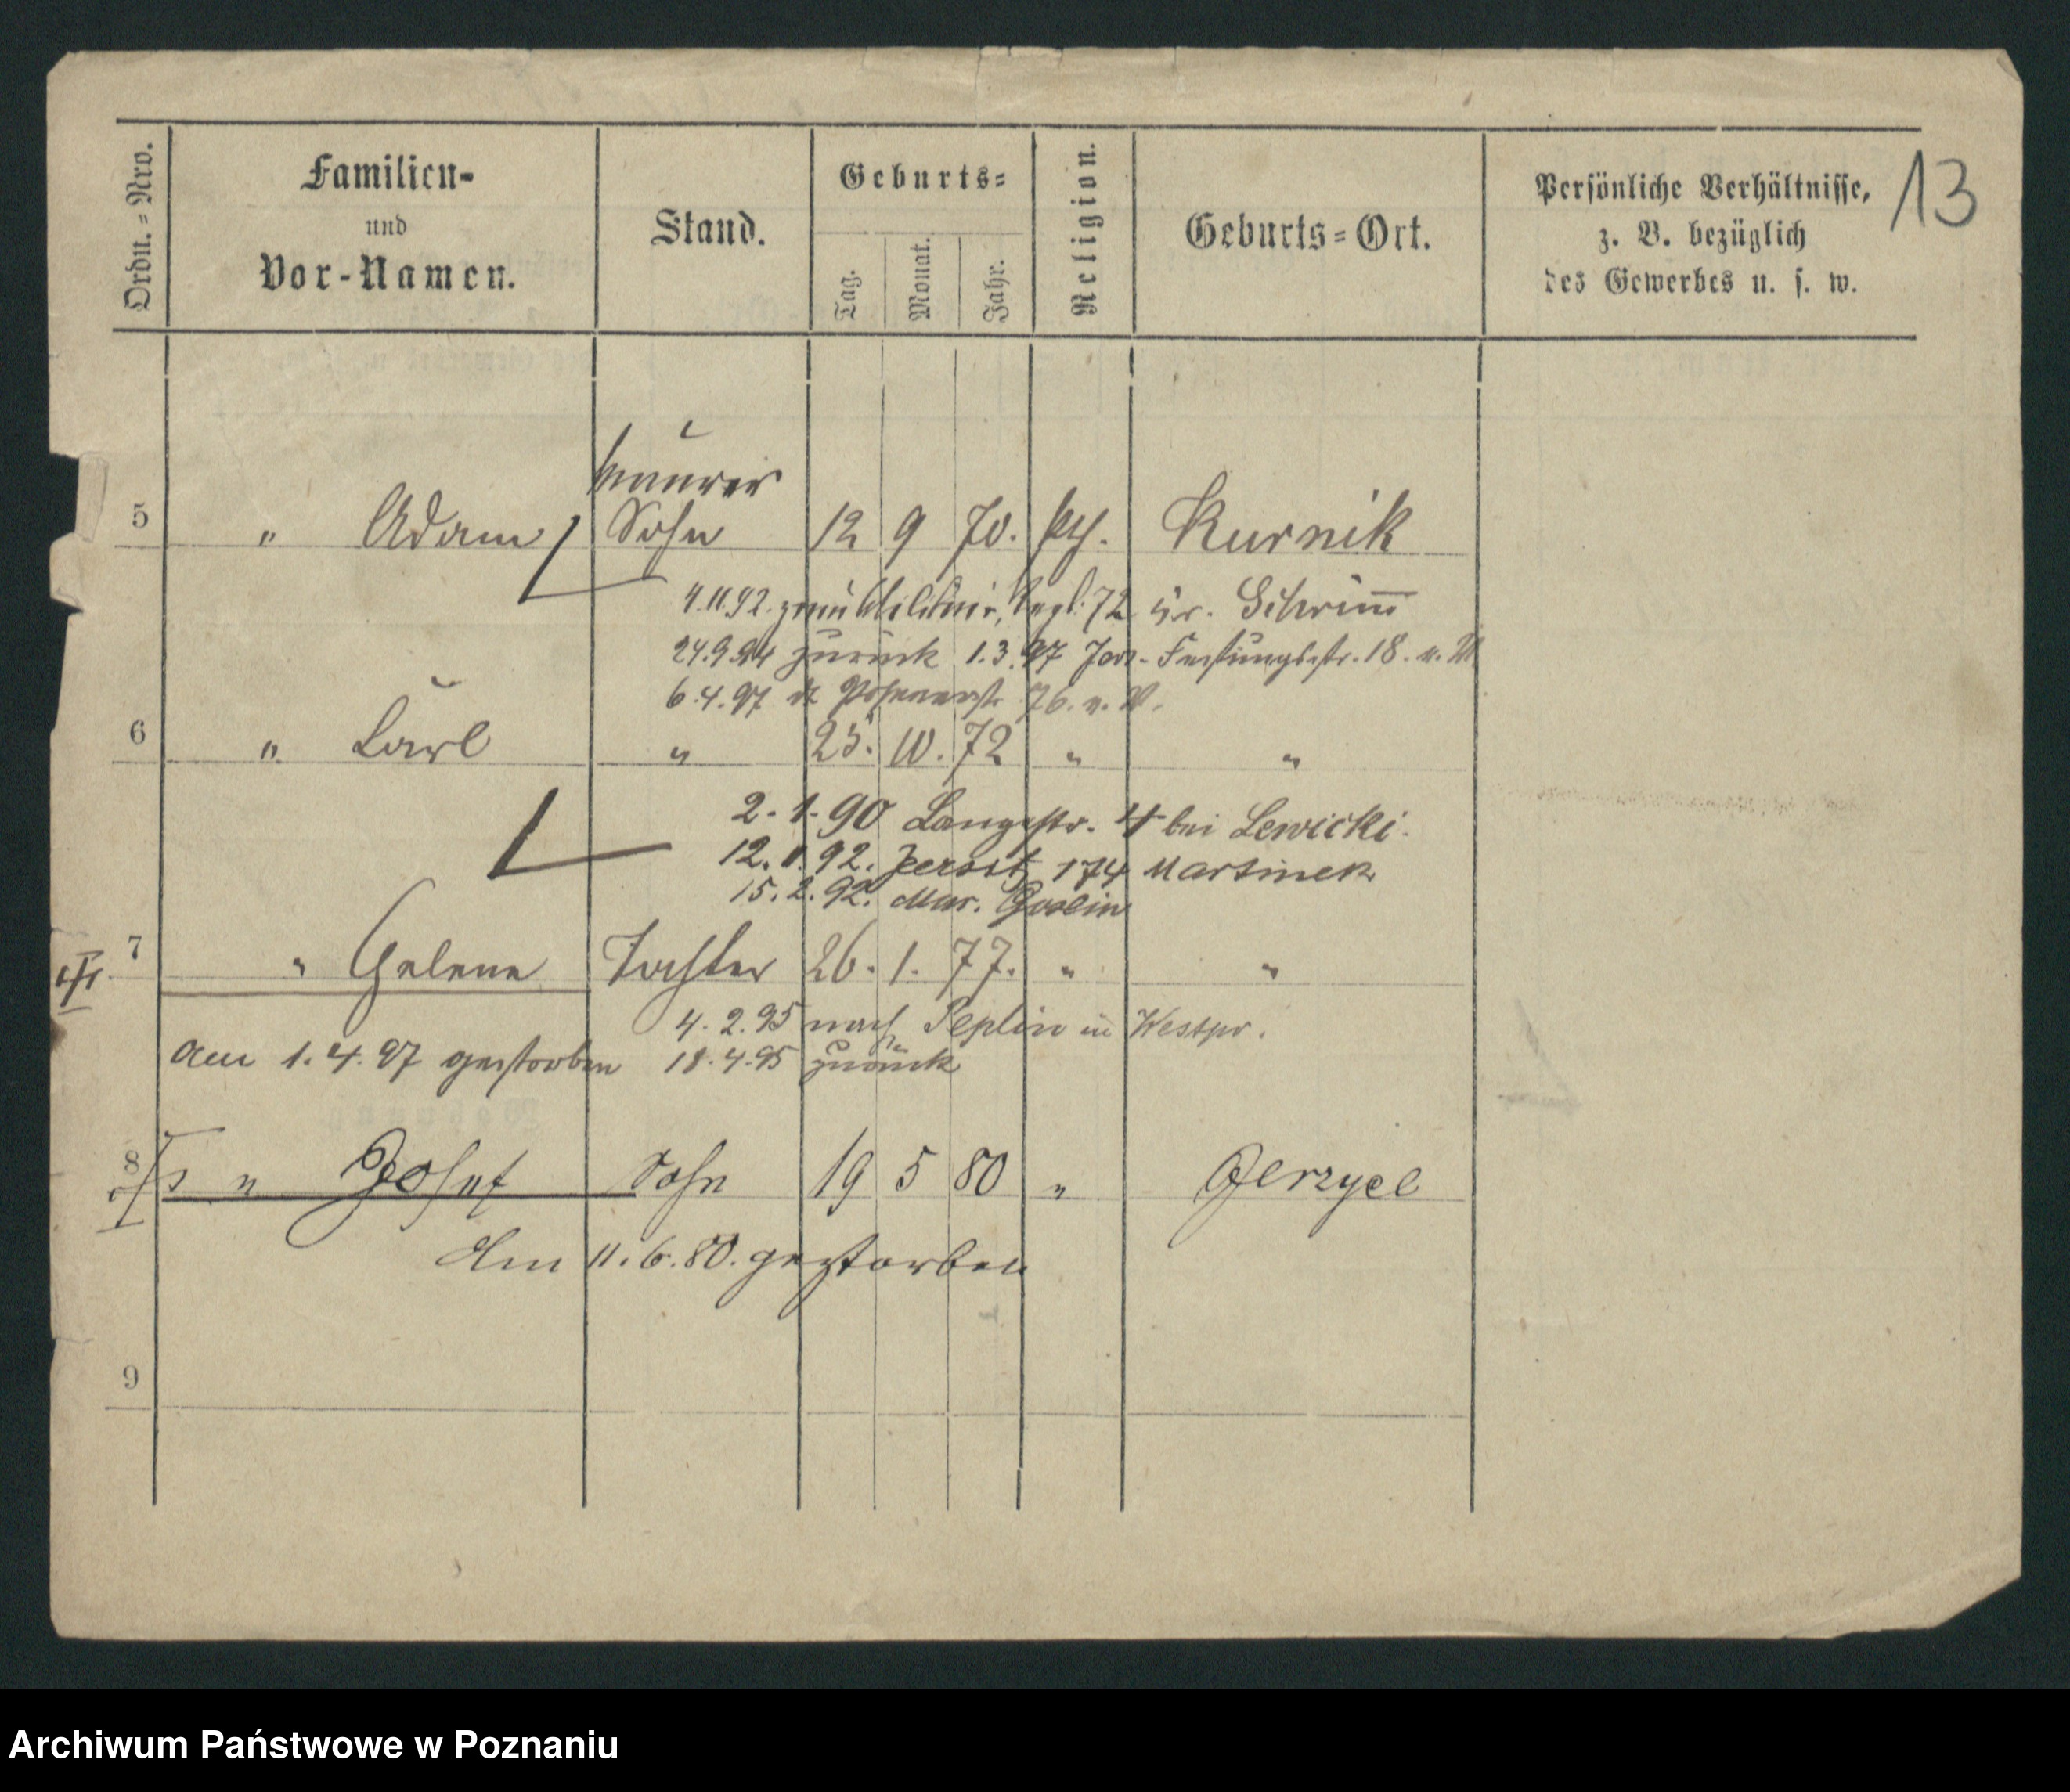 13
Ordn.=Nro.
Familien-
und
Vor-Namen.
Stand.
Geburts=
Tag.
Monat.
Jahr.
Religion.
Geburts=Ort.
Persönliche Verhältnisse,
z. B. bezüglich
des Gewerbes u. s. w.
Maurer
5 " Adam Sohn 12 9 70. kth. Kurnik
4.11.92. zum Militair, 72 Schrimm
24.9.94 zurück 1.3.97 Festungsstr. 18. v. W
6.4.97 Posenerstr. 76. v. W.
6 " Carl " 25. 10. 72 " "
2. 1. 90 Langestr. 4 bei Lewicki.
12. 1. 92. Jersitz 174 Martinek
15. 2. 92. Mur. Goslin
7 " Helene Tochter 26. 1. 77. " "
4. 2. 95 nach Peplin in Westpr.
am 1. 4. 97 gestorben 18. 4. 95 zurück
8 " Josef Sohn 19 5 80 " Jerzyce
Am 11. 6. 80. gestorben
9
Archiwum Państwowe w Poznaniu